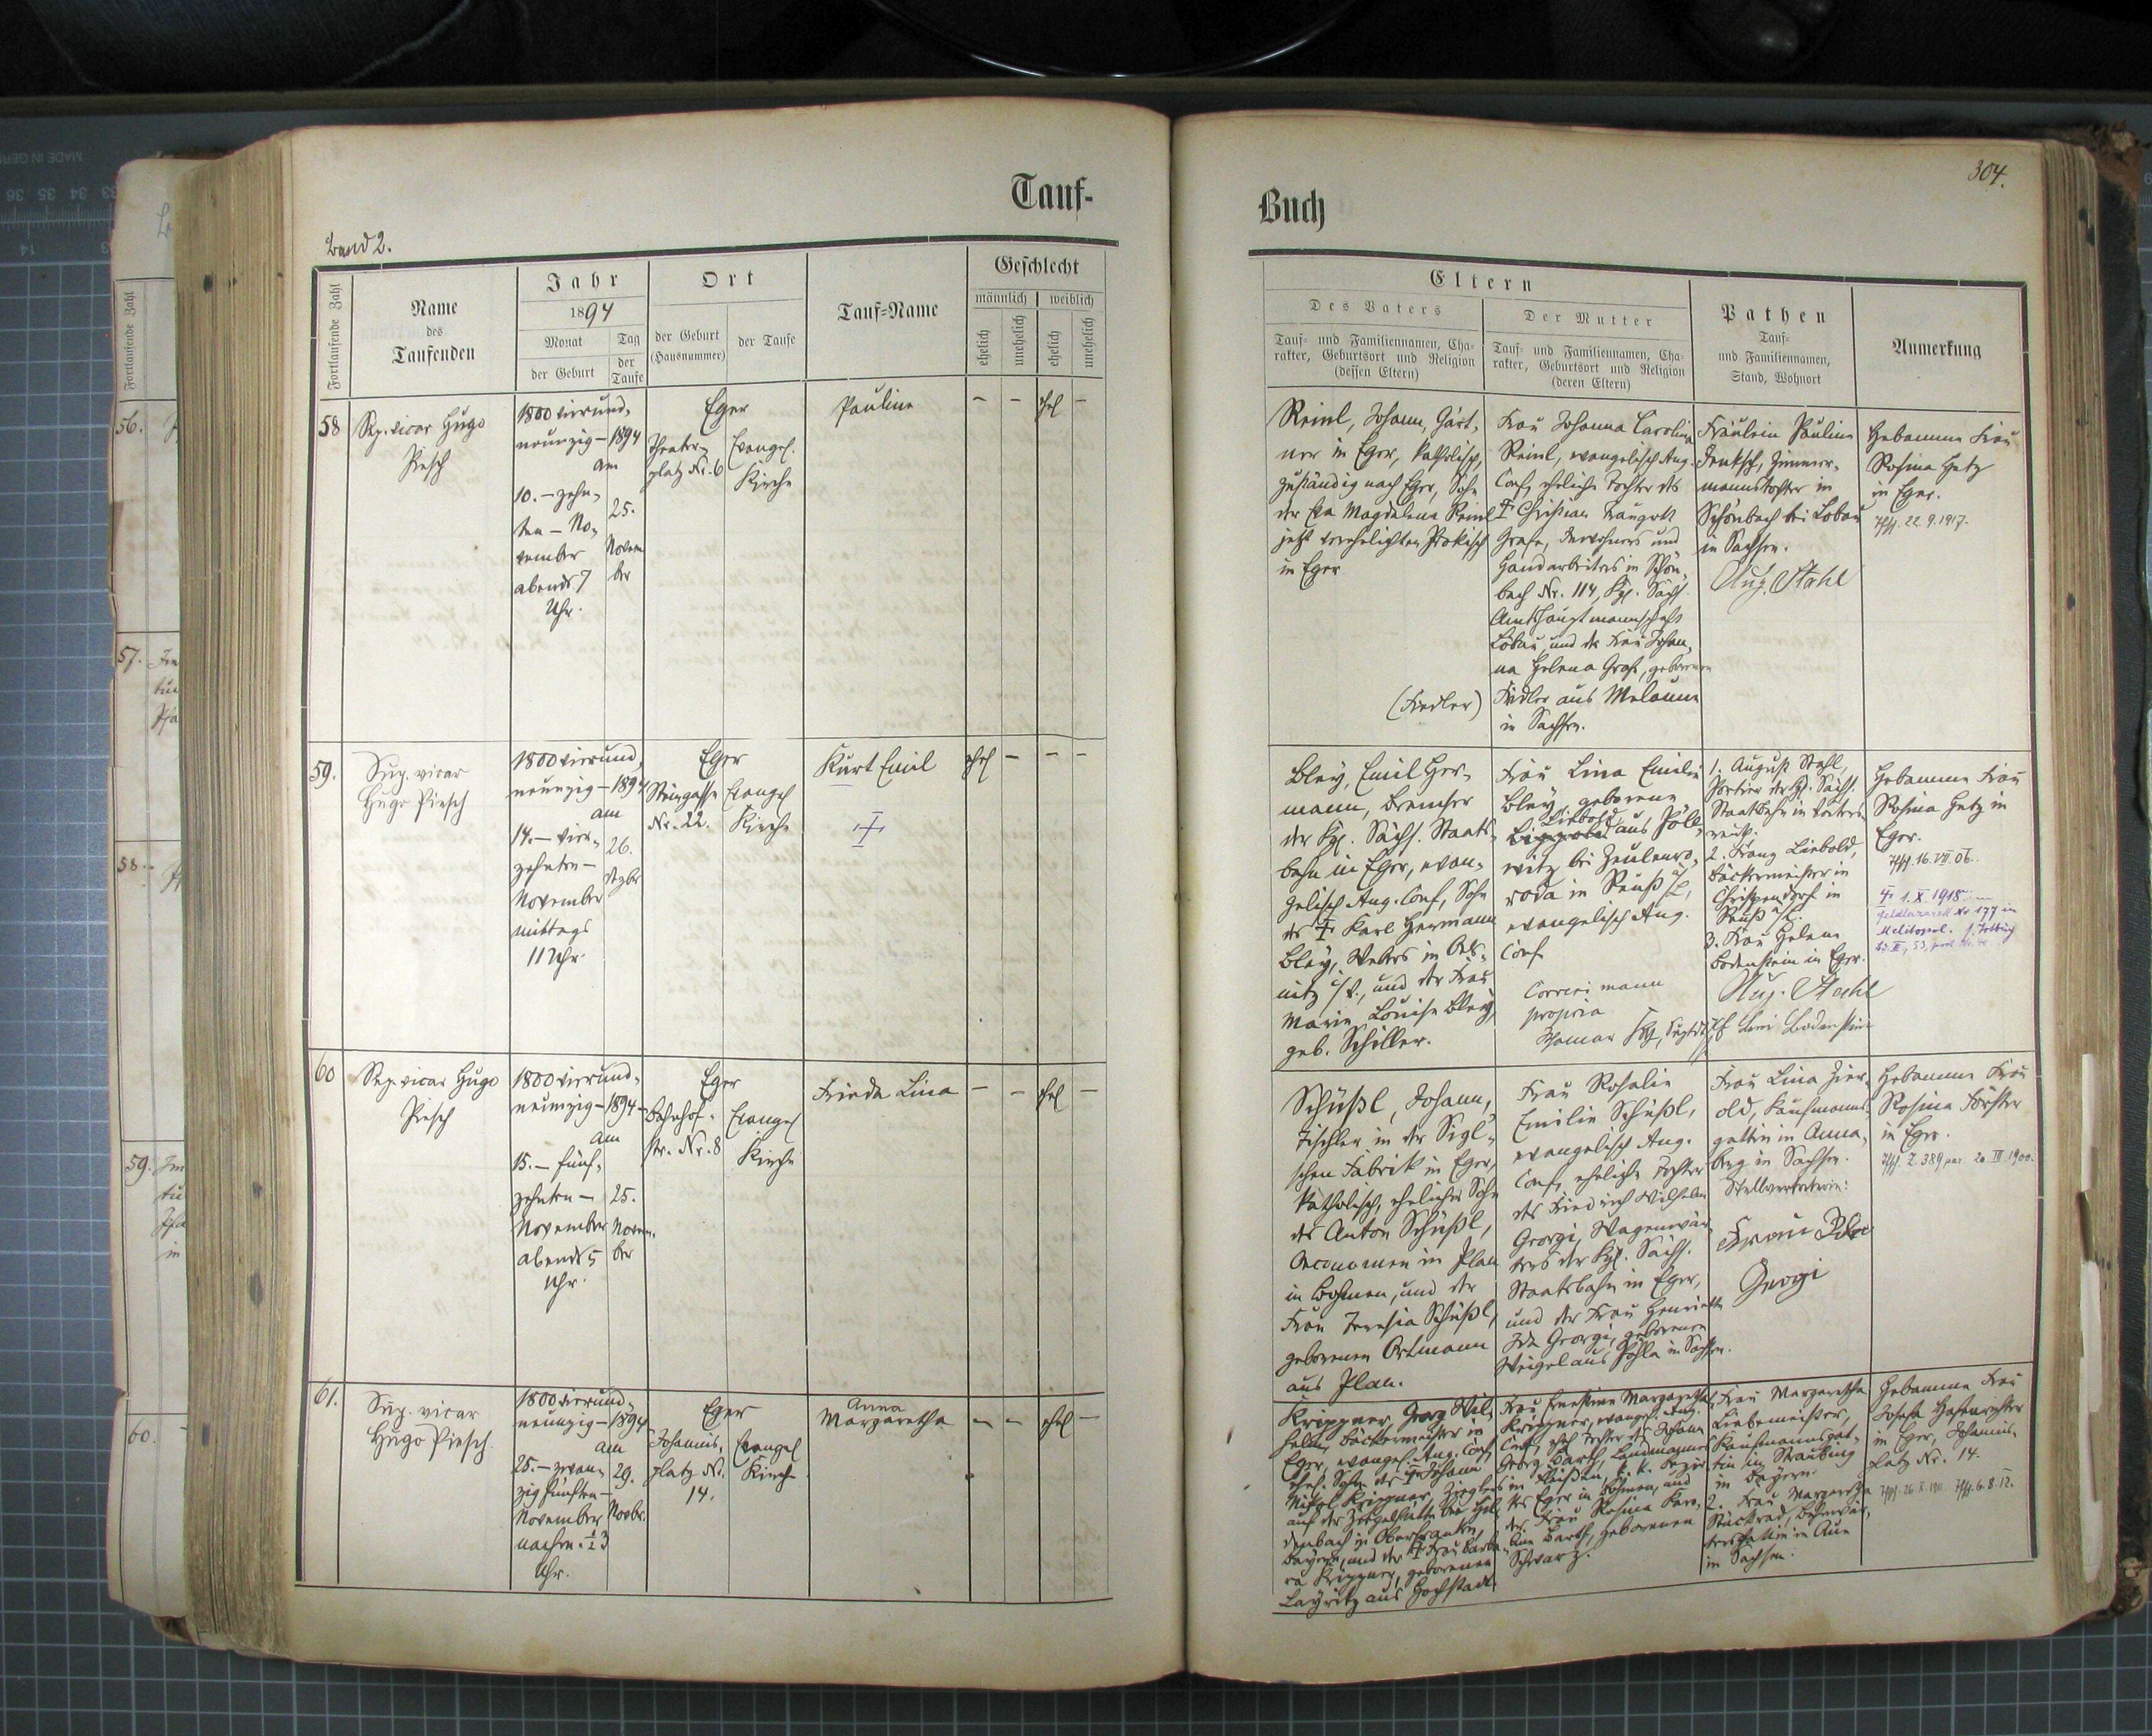 Tauf-
Buch
304.
Band 2.
Fortlaufende Zahl
Name
des
Taufenden
Jahr
1894
Monat
der Geburt
Tag
der
Taufe
Ort
der Geburt
(Hausnummer)
der Taufe
Tauf-Name
Geschlecht
männlich
weiblich
ehelich
unehelich
ehelich
unehelich
Eltern
Des Vaters
Tauf- und Familiennamen, Cha-
rakter, Geburtsort und Religion
(dessen Eltern)
Der Mutter
Tauf- und Familiennamen, Cha-
rakter, Geburtsort und Religion
(deren Eltern)
Pathen
Tauf-
und Familiennamen,
Stand, Wohnort
Anmerkung
58
Sup. vicar Hugo
Piesch
1800 vierund-
neunzig - 1894
am
10. - zehn-
ten - No-
vember
abends 7
Uhr.
25.
Novem
ber
Eger
Theater-
platz Nr. 6
Evangel.
Kirche
Pauline
- - ehel -
Reinl, Johann, Gärt-
ner in Eger, katholisch,
zuständig nach Eger, Sohn
der Eva Magdalena Reinl
jetzt verehelichten Prokisch
in Eger
(Fiedler)
Frau Johanna Carolina
Reinl, evangelisch Aug.
Conf, eheliche Tochter des
† Christian Traugott
Grafe, Inwohners und
Handarbeiters in Schön-
bach Nr. 114, Kgl. Sächs.
Amtshauptmannschaft
Löbau, und der Frau Johan-
na Helena Graf, geborenen
Fiedler aus Melaune
in Sachsen.
Fräulein Pauline
Zimmer-
mannstochter in
Schönbach bei Löbau
in Sachsen.
Aug. Stahl
Hebamme Frau
Rosina Hetz
in Eger.
22. 9. 1917.
59.
Sup. vicar
Hugo Piesch
1800 vierund-
neunzig - 1894
am
14. - vier-
zehnten -
November
mittags
11 Uhr.
26.
Dezber
Eger
Steingasse
Nr. 22.
Evangel
Kirche
Kurt Emil
†
ehel - - -
Bley, Emil Her-
mann, Bremser
der Kgl. Sächs. Staats-
bahn in Eger, evan-
gelisch Aug. Conf, Sohn
des † Karl Hermann
Bley, Webers in Oels-
nitz i/V., und der Frau
Marie Louise Bley,
geb. Schiller.
Frau Lina Emilie
Bley, geborene
Liebold
aus Pöll-
witz bei Zeulenro-
roda in Reuß ä/L,
evangelisch Aug.
Conf
Correxi manu
propria
1. August Stahl,
Portier der Kgl. Sächs.
Staatsbahn in
2. Franz Liebold,
Bäckermeister in
Chrispendorf in
Reuß ä/L.
3. Frau Helene
Bodenstein in Eger.
Aug. Stahl
Leni Bodenstein
Hebamme Frau
Rosina Hetz in
Eger.
16. VII. 06.
† 1. X 1918 im
Feldlazarett Nr 177 in
Melitopol.
60
Sup. vicar Hugo
Piesch
1800 vierund-
neunzig - 1894 -
am
15. - fünf-
zehnten -
November
abends 5
Uhr.
25.
Novem-
ber
Eger
Bahnhof-
str. Nr. 8
Evangel
Kirche
Frieda Lina
- - ehel -
Schüßl, Johann,
Tischler in der Sigl'-
schen Fabrik in Eger,
katholisch, ehelicher Sohn
des Anton Schüßl,
Oeconomen in Plan
in Böhmen, und der
Frau Teresia Schüßl,
geborenen Ortmann
aus Plan.
Frau Rosalie
Emilie Schüßl,
evangelisch Aug.
Conf, eheliche Tochter
des Friedrich Wilhelm
Georgi, Wagenwär-
ters der Kgl. Sächs.
Staatsbahn in Eger,
und der Frau Henriette
Ida Georgi, geborenen
Weigel aus Pöhla in Sachsen.
Frau Lina Zier-
old, Kaufmanns-
gattin in Anna-
berg in Sachsen.
Stellvertreterin:
Frau Ida
Georgi
Hebamme Frau
Rosina Förster
in Eger.
Z. 389 20. III. 1900.
61.
Sup. vicar
Hugo Piesch.
1800 vierund-
neunzig - 1894
am
25. - zwan-
zigfünften -
November
nachm. ½ 3
Uhr.
29.
Novbr.
Eger
Johannis-
platz Nr.
14.
Evangel
Kirche
Anna
Margaretha
- - ehel -
Krippner, Georg Wil-
helm, Bäckermeister in
Eger, evangel. Aug. Conf,
ehel. Sohn des † Johann
Nikol Krippner, Zieglers
auf der Ziegelhütte bei Hel-
denbach in Oberfranken,
Bayern, und der † Frau Barba-
ra Krippner, geborenen
Layritz aus Hochstadt.
Frau Margaretha
Krippner, evangel. Aug.
Conf, ehel. Tochter des Johann
Georg Barth, Landmannes
in k. k. Bezir-
kes Eger in Böhmen, und
der Frau Rosina Karo-
line Barth, geborenen
Schwarz.
1. Frau Margaretha
Liebermeister,
Kaufmannsgat-
tin in Straubing
in Bayern.
2. Frau Margaretha
Stückrad,
in Aue
in Sachsen.
Hebamme Frau
Josefa
in Eger, Johannis-
platz Nr. 14.
26. X. 1911. 6. 8. 12.
56.
57.
58.
59.
60.